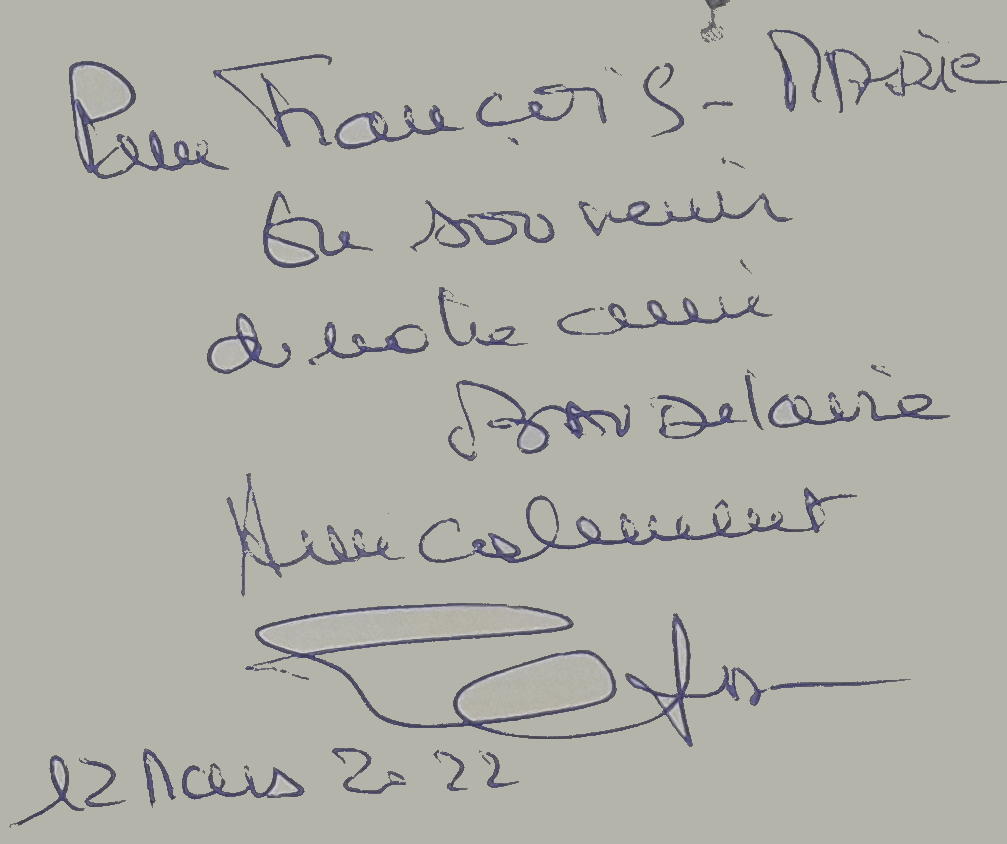 Pour François-Marie
En souvenir
de notre ami
Baudelaire
Amicalement
12 Mars 2022